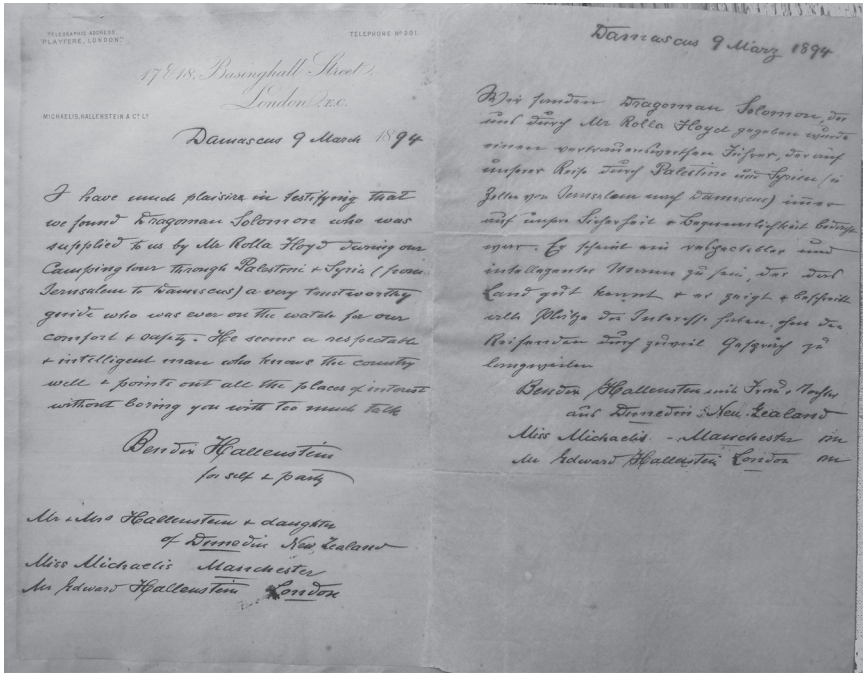 TELEGRAPHIC ADDRESS,
"PLAYFERE, LONDON."
TELEPHONE Nº 301.
17 & 18, Basinghall Street,
London, E.C.
MICHAELIS, HALLENSTEIN & Cº LT
Damascus 9 March 1894
I have much plaisire in testifying that
we found Dragoman Solomon who was
supplied to us by Mr Rolla Floyd during our
Camping tour through Palestine & Syria (from
Jerusalem to Damascus) a very trustworthy
guide who was ever on the watch for our
comfort & safety. He seems a respectable
& intelligent man who knows the country
well & points out all the places of interest
without boring you with too much talk
Bendix Hallenstein
for self & party
Mr & Mrs Hallenstein & daughter
of Dunedin New Zealand
Miss Michaelis Manchester
Mr Edward Hallenstein London
Damascus 9 März 1894
Wir fanden Dragoman Solomon, der
uns durch Mr Rolla Floyd gegeben wurde
einen vertrauenswerthen Führer, der auf
unserer Reise durch Palestina und Syrien (in
Zelten von Jerusalem nach Damascus) immer
auf unsere Sicherheit & Bequemlichkeit
war. Er scheint ein respectabler und
intelligenter Mann zu sein, der das
Land gut kennt & er zeigt & beschreibt
alle Plätze die Interesse haben, ohne die
Reisenden durch zuviel Gespräch zu
langweilen
Bendix Hallenstein mit Frau & Tochter
aus Dunedin New Zealand
Miss Michaelis - Manchester
Mr Edward Hallenstein London